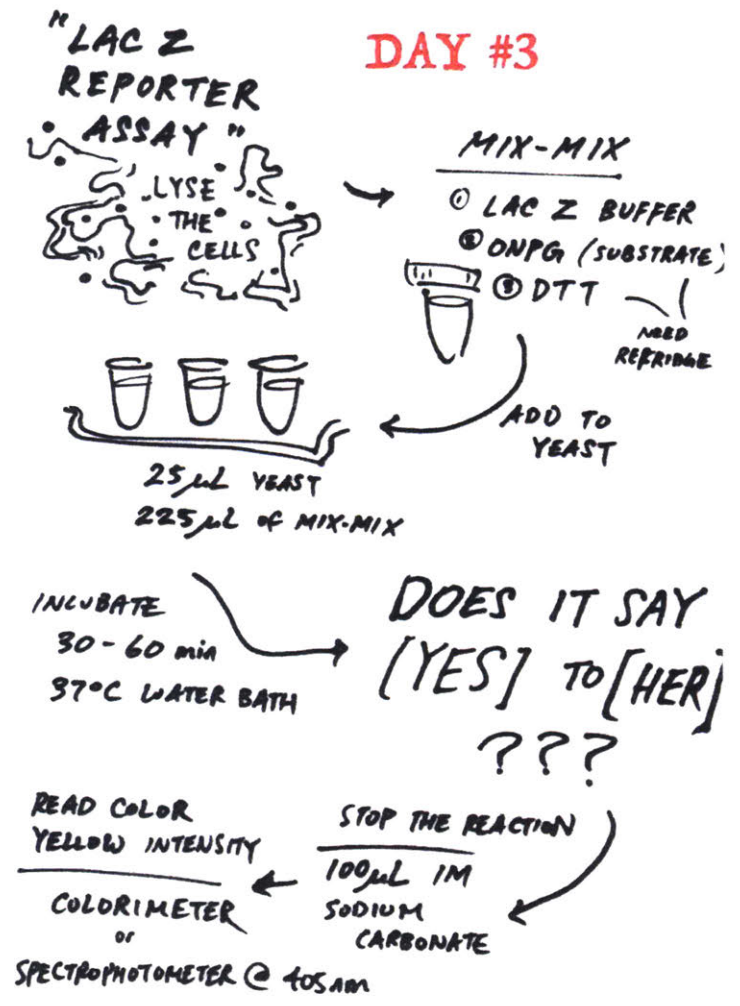 "LAC Z
REPORTER
ASSAY"
DAY #3
LYSE
THE
CELLS
MIX-MIX
① LAC Z BUFFER
② ONPG (SUBSTRATE)
③ DTT
NEED
REFRIDGE
ADD TO
YEAST
25 µL YEAST
225 µL of MIX-MIX
INCUBATE
30-60 min
37°C WATER BATH
DOES IT SAY
[YES] TO [HER]
???
STOP THE REACTION
100 µL 1M
SODIUM
CARBONATE
READ COLOR
YELLOW INTENSITY
COLORIMETER
or
SPECTROPHOTOMETER @ 405nm